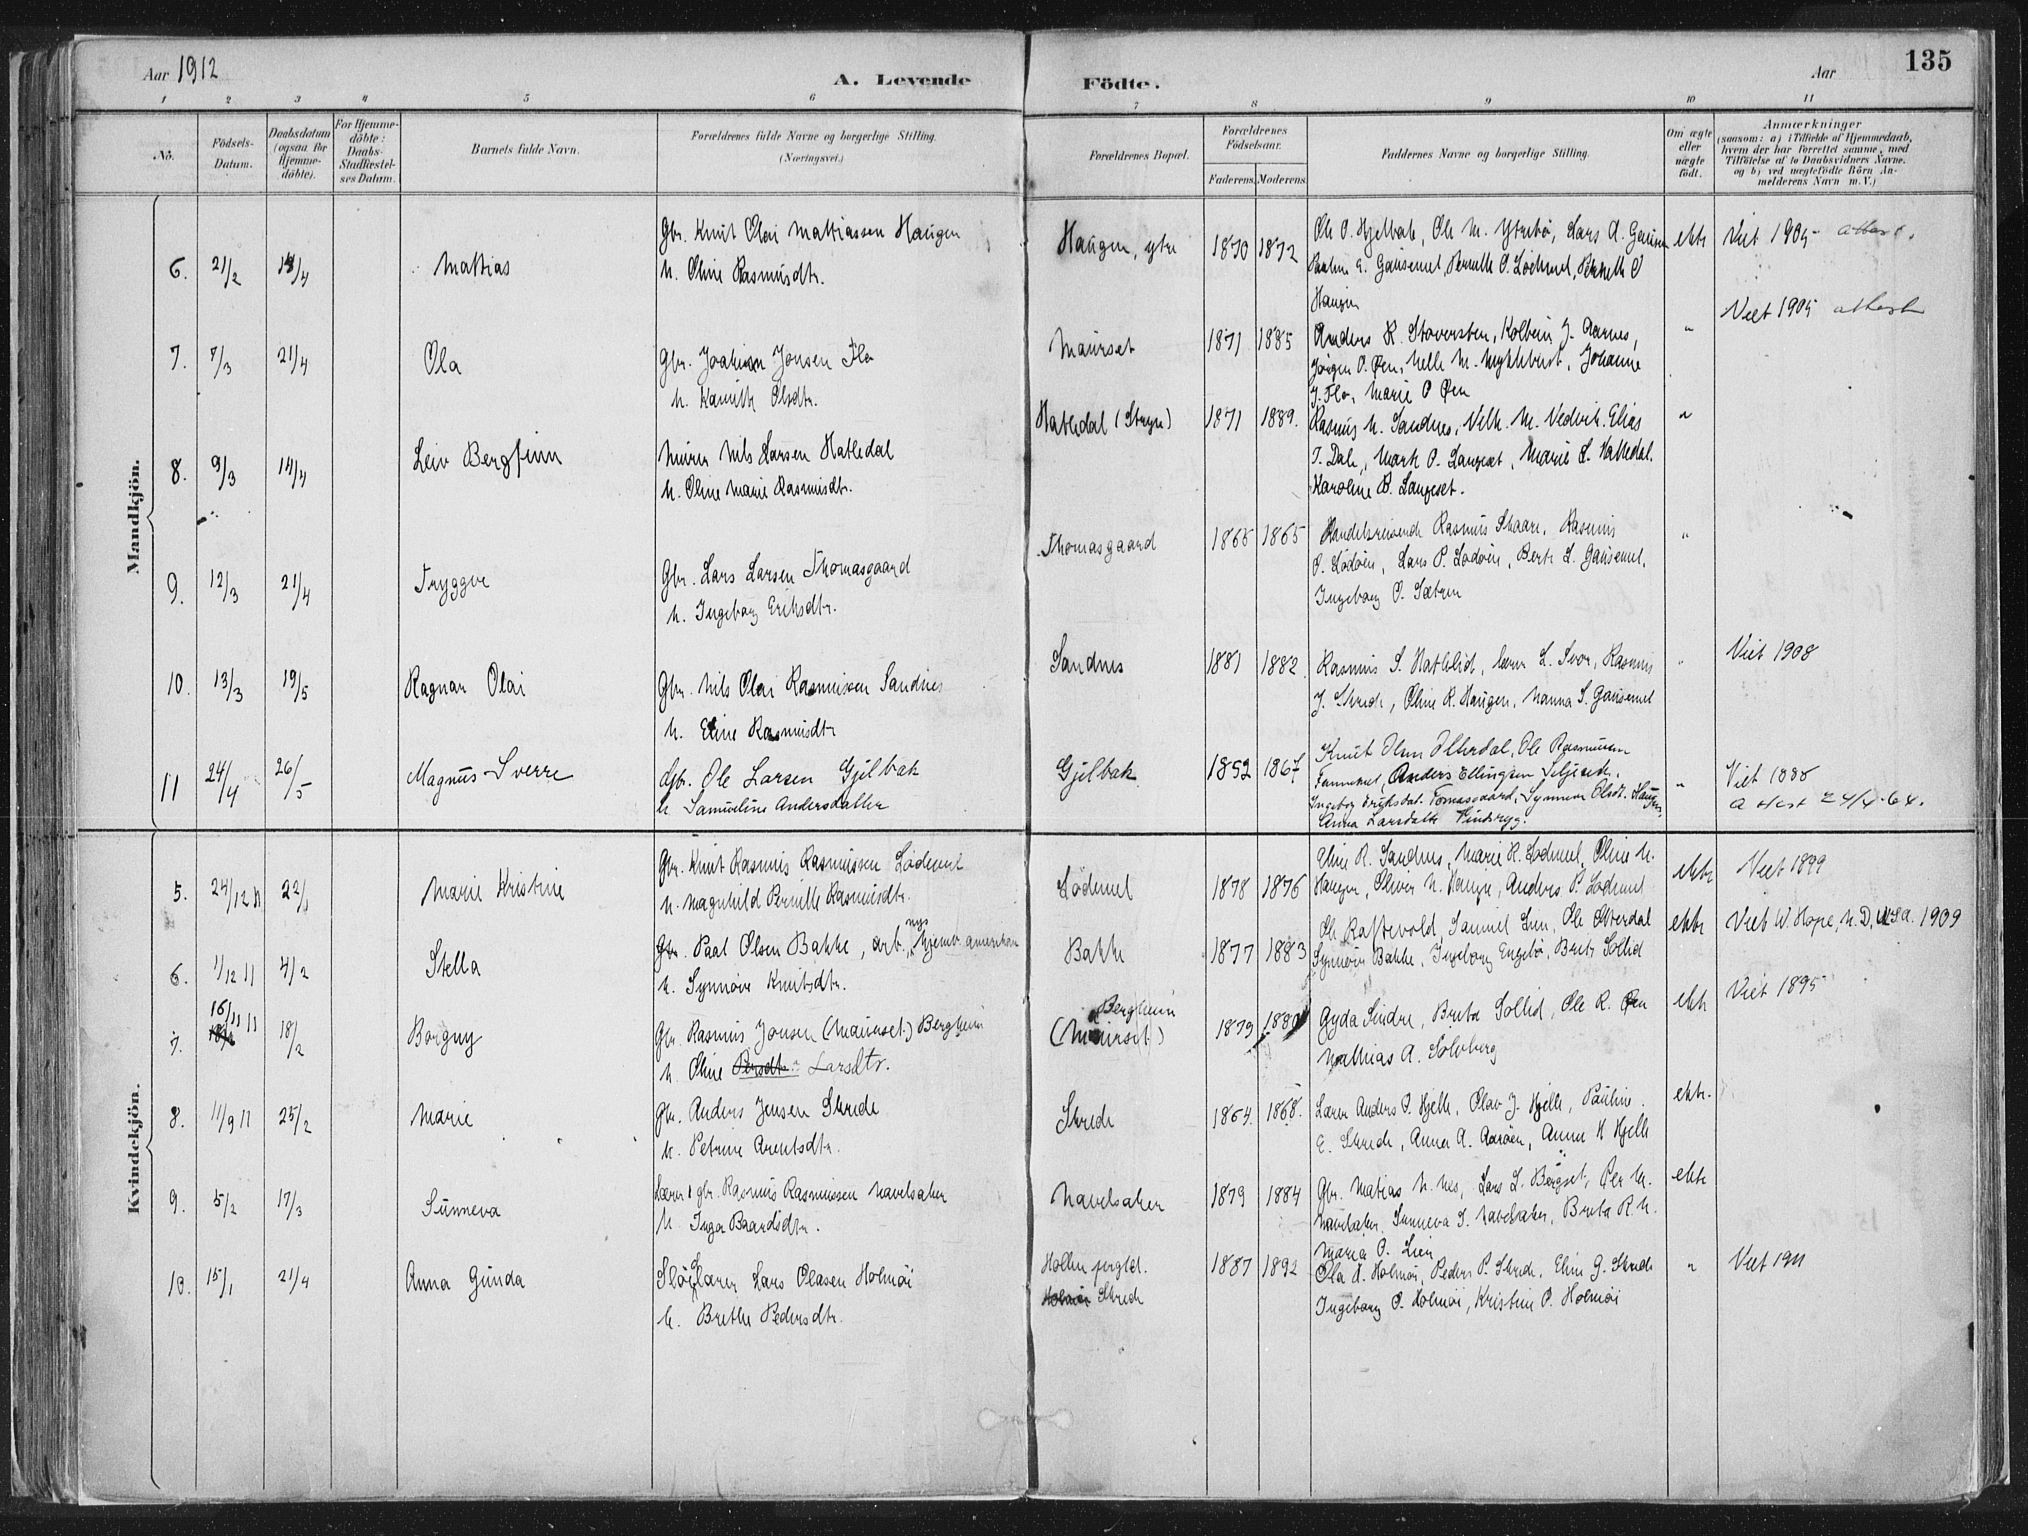 Aar 1912
A. Levende
Födte.
Aar
135
1 2 3 4 5 6 7 8 9 10 11
No.
Födsels-Datum.
Daabsdatum (ogsaa for Hjemme-döbte).
For Hjemme-döbte: Daabs-Stadfæstelses Datum.
Barnets fulde Navn.
Forældrenes fulde Navne og borgerlige Stilling.
(Næringsvei.)
Forældrenes Bopæl.
Forældrenes Födselsaar.
Faderens. Moderens.
Faddernes Navne og borgerlige Stilling.
Om ægte eller uægte födt.
Anmærkninger
(saasom: a) i Tilfælde af Hjemmedaab, hvem der har forrettet samme, med Tilföielse af to Daabsvidners Navne. og b) ved uægtefödte Börn Anmelderens Navn m. V.)
Mandkjön.
6. 21/2 14/4 Mattias
Gbr. Knut Olai Mattiassen Haugen
h. Oline Rasmusdtr.
Haugen, ytre 1870 1872
Ole O. Hjelbak, Ole M. Ytrebö, Lars A. Gausemel
Pauline E. Gausemel, Pernille O. Lodemel, Pernille O
Haugen
ekte Viet 1905 attest.
7. 7/3 21/4 Ola
Gbr. Joakim Jonsen Flo
h. Kamilk Olsdtr.
Maurset 1871 1885
Anders R. Staversten, Kolbein J. Aarnes,
Jörgen O. Öen, Nelle M. Myklebust, Johanne
J. Flo, Marie O Öen
" Viet 1905 attest
8. 9/3 14/4 Leiv Bergfinn
Murer Nils Larsen Hatledal
h. Oline Marie Rasmusdtr.
Hatledal (Stryn) 1871 1889.
Rasmus N. Sandnes, Vilh. M. Vedvik, Elias
T. Dale, Marte O. Langeset, Marie L. Hatledal.
Karoline B. Langeset.
"
9. 12/3 21/4 Tryggve
Gbr. Lars Larsen Thomasgaard
h. Ingeborg Eriksdtr.
Thomasgaard 1865 1865
Handelsreisende Rasmus Skaare, Rasmus
O. Lodöen, Lars P. Lodöen, Berte L. Gausemel,
Ingeborg O. Sætren
"
10. 13/3 19/5 Ragnar Olai
Gbr. Nils Olai Rasmussen Sandnes
h. Eline Rasmusdtr
Sandnes 1881 1882.
Rasmus S. Hatlelid, L. Svor, Rasmus
J. Skrede, Oline R. Haugen, Nanna S. Gausemel
" Viet 1908
11 24/4 26/5 Magnus Sverre
Gbr. Ole Larsen Gjelbak
h. Samueline Andersdatter
Gjelbak 1852 1867
Knut Olsen Otterdal, Ole Rasmussen
Fannemel, Anders Ellingsen Seljeset.
Ingebor Eriksdat. Tomasgaard, Synneve Olsdt. Haugen,
Anna Larsdatte Vindsryg.
" Viet 1888
attest 24/4-64.
Kvindekjön.
5. 24/12 11 22/1 Marie Kristine
Gbr. Knut Rasmus Rasmussen Lödemel
h. Magnhild Pernille Rasmusdtr.
Lödemel 1878 1876
Eline R. Sandnes, Marie R. Lodemel, Oline N.
Haugen, Oliver N. Haugen, Anders P. Lodemel
ekte Viet 1899
6. 1/12 11 4/2 Stella
Gbr. Paal Olsen Bakke, arb. nys hjemv. amerikan
h. Synnöve Knutsdtr.
Bakke 1877 1883
Ole Raftevold, Samuel Lien, Ole Otterdal
Synnöve Bakke, Ingeborg Engebö, Brite Sollid
ekte Viet W. Hope, N. D, U.S.a. 1909
7. 16/11 11 18/2 Borgny
Gbr. Rasmus Jonsen (Maurset) Bergheim
h. Oline Persdtr. Larsdtr.
Bergheim
(Maurset) 1879 1880
Gyda Sindre, Brita Sollid, Ole R. Öen
Mathias A. Solvberg
ekte Viet 1895
8. 11/9 11 25/2 Marie
Gbr. Anders Jensen Skrede
h. Petrine Arentsdtr.
Skrede 1864. 1868.
Lærer Anders P. Hjelle, Olav J. Hjelle, Pauline
E. Skrede, Anna A. Aaröen, Anna K Hjelle
ekte.
9. 5/2 17/3 Sunneva
Lærer & gbr. Rasmus Rasmussen Navelsaker
h. Inga Baardsdtr.
Navelsaker 1879 1884
Gbr. Matias N. Nes, Lars L. Bergset, Per M.
Navelsaker, Sunneva S. Navelsaker, Brita R. N.
ekte
10. 15/1 21/4 Anna Gunda
Slöjdlærer Lars Olasen Holmöi
h. Brethe Pedersdtr.
Skrede 1887 1892
Maria O. Lien
Ola A. Holmöi, Peder P. Skrede, Eline G. Skrede
Ingeborg O. Holmöi, Kristine P. Holmöi
" Viet 1911